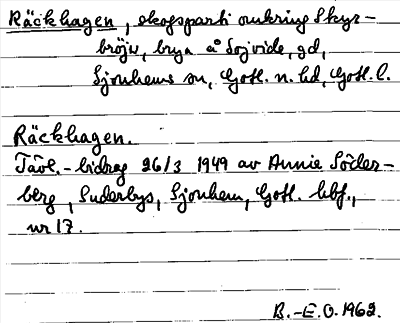 Räckhagen, skogsparti omkring Skyr-
bröju, brya å Sojvide, gd,
Sjonhems sn, Gotl. n. hd, Gotl. l.
Räckhagen.
Tävl.-bidrag 26/3 1949 av Annie Söder-
berg, Suderbys, Sjonhem, Gotl. hbf.,
nr 17.
B.-E.O. 1962.